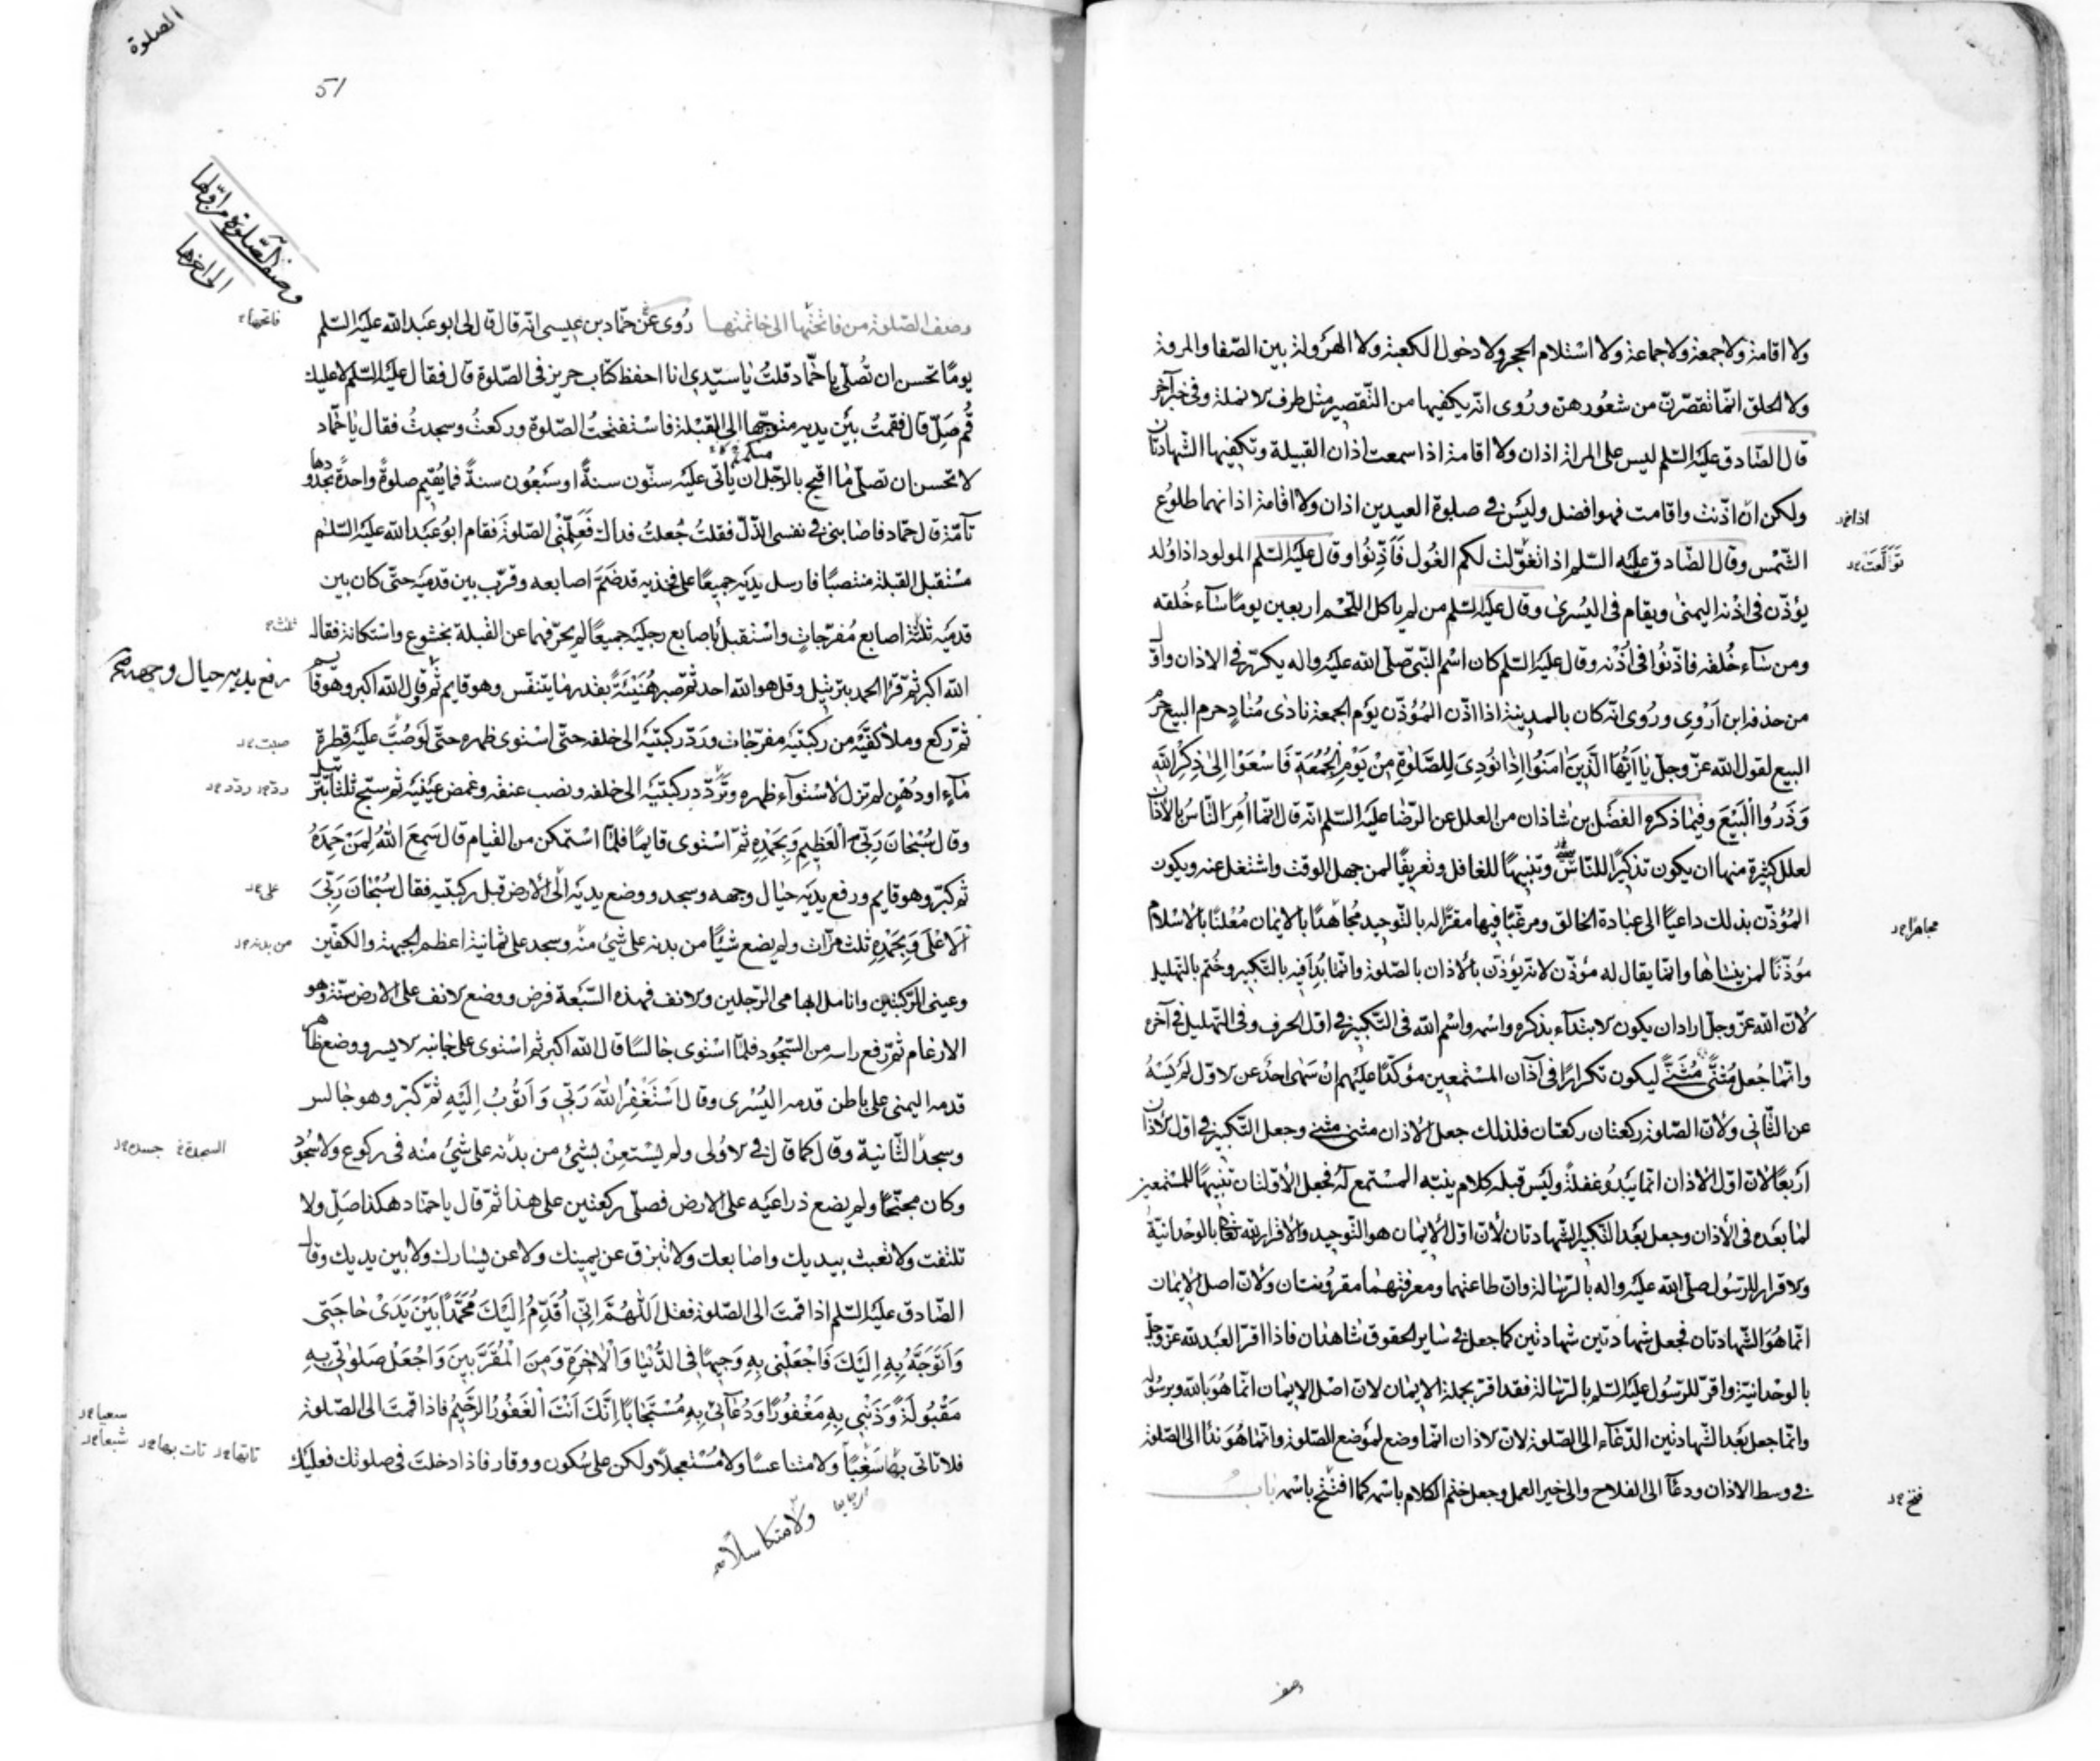 ولا اقامة ولا جمعة ولا جماعة ولا استلام الحجر ولا دخول الكعبة ولا الهرولة بين الصّفا والمروة
ولا الحلق انّما تقصّرن من شعورهنّ ورُوى انّه يكفيها من التّقصير مثل طرف الانملة وفى خبر آخر
قال الصّادق عليه السّلم ليس على المراة اذان ولا اقامة اذا سمعت اذان القبيلة وتكفيها الشّهادتان
ولكن ان اذّنت واقامت فهو افضل وليس فى صلوة العيدين اذان ولا اقامة اذانهما طلوع
اذانهما
الشّمس وقال الصّادق عليه السّلم اذا تغوّلت لكم الغول فَاَذِّنُوا وقال عليه السّلم المولود اذا وُلد
تَوَلَّعَت
يؤذّن فى اذنه اليمنى ويقام فى اليسرى وقال عليه السّلم من لم ياكل اللّحم اربعين يومًا سٰآء خُلقه
ومن سٰآء خُلقه فاذّنُوا فى اُذنه وقال عليه السّلم كان اسم النّبىّ صلّى الله عليه واله يكرّر فى الاذان واوّل
من حذفه ابن اَرْوى ورُوى انّه كان بالمدينة اذا اذّن المُؤذّن يوم الجمعة نادى مُنٰادٍ حرم البيع حرم
البيع لقول الله عزّ وجلّ يٰا اَيُّهَا الَّذِينَ اٰمَنُوا اِذٰا نُودِىَ لِلصَّلٰوةِ مِنْ يَوْمِ الْجُمُعَةِ فَاسْعَوْا اِلىٰ ذِكْرِ اللهِ
وَذَرُوا الْبَيْعَ وفيما ذكره الفضل بن شاذان من العلل عن الرّضا عليه السّلم انّه قال انّما اُمِرَ النّاسُ بالاذان
لعلل كثيرة منها ان يكون تذكيرًا للنّاسى وتنبيهًا للغافل وتعريفًا لمن جهل الوقت واشتغل عنه ويكون
المُؤذّن بذلك داعيًا الى عبادة الخالق ومرغّبًا فيها مقرًّا له بالتّوحيد مُجاهدًا بالايمان مُعْلنًا بالاسلام
مجاهرًا
مُوذّنًا لمن ينساها وانّما يقال له مؤذّن لانّه يؤذّن بالاذان بالصّلوة وانّما بُدِأَ فيه بالتّكبير وخُتم بالتّهليل
لانّ الله عزّ وجلّ اراد ان يكون الابتدآء بذكره واسمه واسم الله فى التّكبير فى اوّل الحرف وفى التّهليل فى آخره
وانّما جُعل مَثْنىٰ مَثْنىٰ ليكون تكرارًا فى آذان المستمعين مؤكّدًا عليهم ان سَهىٰ احدٌ عن الاوّل لم يَسْهُ
عن الثّانى ولانّ الصّلوة ركعتان ركعتان فلذلك جعل الاذان مثنى مثنى وجعل التّكبير فى اوّل الاذان
اربعًا لانّ اوّل الاذان انّما يَبْدُو غفلةً وليس قبله كلام ينبّه المستمع له فجعل الاوّلتان تنبيهًا للمستمعين
لما بعده فى الاذان وجعل بعد التّكبير الشّهادتان لانّ اوّل الايمان هو التّوحيد والاقرار لله تعالى بالوحدانيّة
والاقرار للرّسول صلّى الله عليه واله بالرّسالة وانّ طاعتهما ومعرفتهما مقرونتان ولانّ اصل الايمان
انّما هو الشّهادتان فجعل شهادتين شهادتين كما جعل فى ساير الحقوق شاهدان فاذا اقرّ العبد لله عزّ وجلّ
بالوحدانيّة واقرّ للرّسول عليه السّلم بالرّسالة فقد اقرّ بجملة الايمان لانّ اصل الايمان انّما هو بالله وبرسوله
وانّما جعل بعد الشّهادتين الدّعآء الى الصّلوة لانّ الاذان انّما وضع لموضع الصّلوة وانّما هو ندآ الى الصّلوة
فى وسط الاذان ودعآ الى الفلاح والى خير العمل وجعل ختم الكلام باسمه كما افتتح باسمه بابُ
فتح
وصف
الصلوة
51
وصف الصّلوة من اوّلها
الى اخرها
وصف الصّلوة من فاتحتها الى خاتمتها رُوى عن حمّاد بن عيسى انّه قال قال لى ابو عبد الله عليه السّلم
فاتحتها
يومًا تحسن ان تُصلّى يا حمّاد قلتُ يا سيّدى انا احفظ كتاب حريز فى الصّلوة قال فقال عليه السّلم لا عليك
قُم صَلِّ قال فقمتُ بين يديه متوجّها الى القبلة فاستفتحتُ الصّلوة وركعتُ وسجدتُ فقال يا حمّاد
لا تحسن ان تصلّى ما اقبح بالرّجل ان ياتى عليه ستّون سنةً او سبعُون سنةً فما يُقيم صلوةً واحدةً بحدودها
تآمّة قال حمّاد فاصابنى فى نفسى الذّلّ فقلتُ جُعلتُ فداك فَعَلِّمْنى الصّلوةَ فقام ابو عبد الله عليه السّلم
مستقبل القبلة منتصبًا فارسل يديه جميعًا على فخذيه قد ضَمَّ اصابعه وقرّب بين قدميه حتّى كان بين
قدميه ثلثة اصابع مُفرّجاتٍ واستقبل باصابع رجليه جميعًا لم يحرّفهما عن القبلة بخشوع واستكانة فقال
ثلث
الله اكبر ثمّ قرا الحمد بترتيل وقل هو الله احد ثمّ صبر هُنَيْئَةً بقدر ما يتنفّس وهو قايم ثمّ قال الله اكبر وهو قايم
رفع يديه حيال وجهه
ثمّ ركع وملأ كفّيه من ركبتيه مفرّجات وردّ ركبتيه الى خلفه حتّى استوى ظهره حتّى لو صُبَّ عليه قطرة
صبت
مآءٍ او دُهْنٍ لم تزل لاستوآء ظهره وتَرَدّد ركبتيه الى خلفه ونصب عنقه وغمض عينيه ثمّ سبّح ثلثًا بترتيل
ردّ ردّد
وقال سُبْحٰانَ رَبِّىَ الْعَظِيمِ وَبِحَمْدِهِ ثمّ استوى قايمًا فلمّا استمكن من القيام قال سَمِعَ اللهُ لِمَنْ حَمِدَهُ
ثمّ كبّر وهو قايم ورفع يديه حيال وجهه وسجد ووضع يديه الى الارض قبل ركبتيه فقال سُبْحٰانَ رَبِّىَ
على
الْاَعْلىٰ وَبِحَمْدِهِ ثلث مرّات ولم يضع شيئًا من بدنه على شئ منه وسجد على ثمانية اعظم الجبهة والكفّين
من بدنه
وعينى الرّكبتين وانامل ابهامى الرّجلين والانف فهذه السّبعة فرض ووضع الانف على الارض سنّة وهو
الارغام ثمّ رفع راسه من السّجود فلمّا استوى جالسًا قال الله اكبر ثمّ استوى على جانبه الايسر ووضع ظاهر
قدمه اليمنى على باطن قدمه اليُسْرى وقال اَسْتَغْفِرُ اللهَ رَبّى وَاَتُوبُ اِلَيْهِ ثمّ كبّر وهو جالس
وسجد الثّانية وقال كما قال فى الاولى ولم يستعن بشئ من بدنه على شئ منه فى ركوع ولا سجود
السجدة جسده
وكان مجنّحًا ولم يضع ذراعيه على الارض فصلّى ركعتين على هذا ثمّ قال يا حمّاد هكذا صَلّ ولا
تلتفت ولا تعبث بيديك واصابعك ولا تبزق عن يمينك ولا عن يسارك ولا بين يديك وقال
الصّادق عليه السّلم اذا قمت الى الصّلوة فقل اَللّٰهُمَّ اِنّى اُقَدِّمُ اِلَيْكَ مُحَمَّدًا بَيْنَ يَدَىْ حٰاجَتى
وَاَتَوَجَّهُ بِهِ اِلَيْكَ فَاجْعَلْنى بِهِ وَجيهًا فى الدُّنْيٰا وَالْاٰخِرَةِ وَمِنَ الْمُقَرَّبينَ وَاجْعَلْ صَلوٰتى بِهِ
مَقْبُولَةً وَذَنْبى بِهِ مَغْفُورًا وَدُعٰآئى بِهِ مُسْتَجٰابًا اِنَّكَ اَنْتَ الْغَفُورُ الرَّحيمُ فاذا قمت الى الصّلوة
فلا تاتى بها شَعْبًا ولا متناعسًا ولا مُسْتعجلًا ولكن على سُكون ووقار فاذا دخلت فى صلوتك فعليك
سعيا
شبعا
ولا متكاسلا